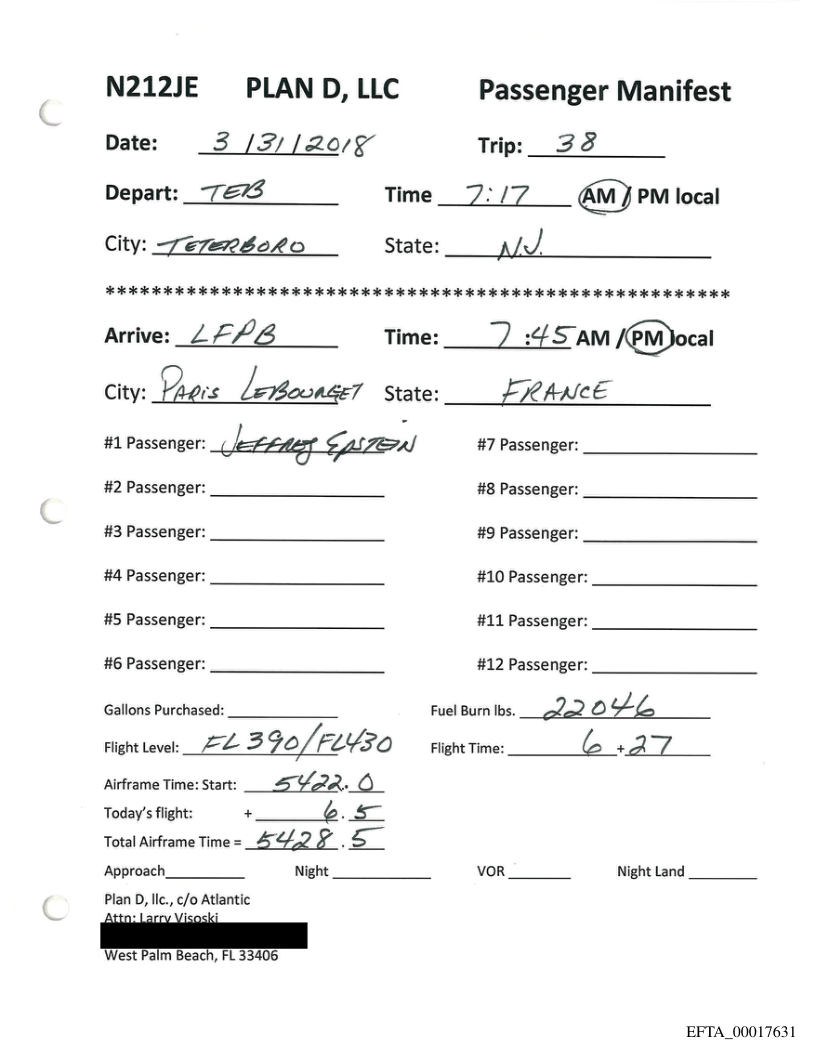 N212JE PLAN D, LLC Passenger Manifest
Date: 3/31/2018 Trip: 38
Depart: TEB Time 7:17 AM / PM local
City: TETERBORO State: N.J.
******************************************************
Arrive: LFPB Time: 7:45 AM / PM local
City: PARIS LEBOURGET State: FRANCE
#1 Passenger: JEFFREY EPSTEIN #7 Passenger:
#2 Passenger: #8 Passenger:
#3 Passenger: #9 Passenger:
#4 Passenger: #10 Passenger:
#5 Passenger: #11 Passenger:
#6 Passenger: #12 Passenger:
Gallons Purchased: Fuel Burn lbs. 22046
Flight Level: FL390/FL430 Flight Time: 6 + 27
Airframe Time: Start: 5422.0
Today's flight: + 6.5
Total Airframe Time = 5428.5
Approach Night VOR Night Land
Plan D, llc., c/o Atlantic
Attn: Larry Visoski
West Palm Beach, FL 33406
EFTA_00017631